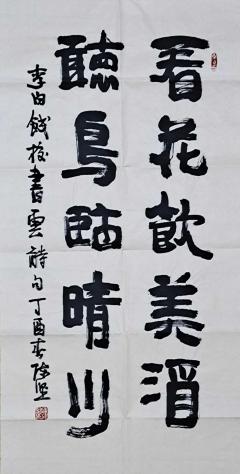 看花飲美酒
聽鳥臨晴川
李白餞校書雲詩句丁酉春